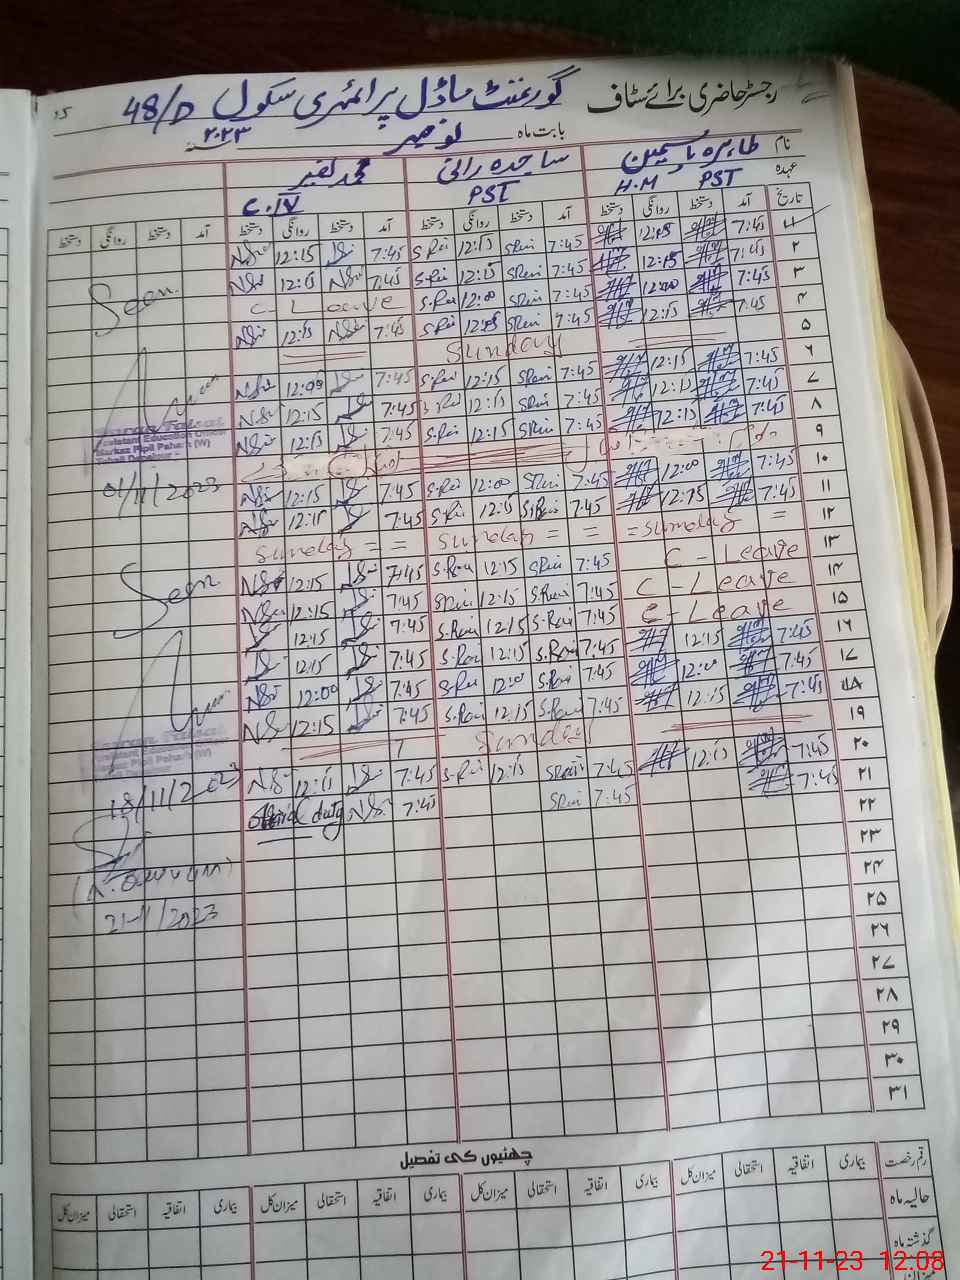 رجسٹر حاضری برائے سٹاف گورنمنٹ ماڈل پرائمری سکول 48/D
بابت ماہ نومبر ۲۰۲۳
نام طاہرہ یاسمین ساجدہ رانی محمد نصیر
عہدہ PST H.M PST C.IV
تاریخ آمد دستخط روانگی دستخط آمد دستخط روانگی دستخط آمد دستخط روانگی دستخط آمد دستخط روانگی دستخط
۱ 7:45 12:15 7:45 S.Rani 12:15 S.Rani 7:45 12:15
۲ 7:45 12:15 7:45 S.Rani 12:15 S.Rani 7:45 12:15
۳ 7:45 12:00 7:45 S.Rani 12:00 S.Rani C- Leave
Seen
۴ 7:45 12:15 7:45 S.Rani 12:15 S.Rani 7:45 12:15
۵ Sunday
۶ 7:45 12:15 7:45 S.Rani 12:15 S.Rani 7:45 12:00
۷ 7:45 12:15 7:45 S.Rani 12:15 S.Rani 7:45 12:15
۸ 7:45 12:15 7:45 S.Rani 12:15 S.Rani 7:45 12:15
Assistant Education Officer
Markaz Pipli Pahar (W)
۹
۱۰ 7:45 12:00 7:45 S.Rani 12:00 S.Rani 7:45 12:15
01/11/2023
۱۱ 7:45 12:15 7:45 S.Rani 12:15 S.Rani 7:45 12:15
۱۲ = Sunday = = = Sunday = = Sunday
۱۳ C - Leave 7:45 S.Rani 12:15 S.Rani 7:45 12:15
Seen
۱۴ C - Leave 7:45 S.Rani 12:15 S.Rani 7:45 12:15
۱۵ C - Leave 7:45 S.Rani 12:15 S.Rani 7:45 12:15
۱۶ 7:45 12:15 7:45 S.Rani 12:15 S.Rani 7:45 12:15
۱۷ 7:45 12:00 7:45 S.Rani 12:00 S.Rani 7:45 12:00
۱۸ 7:45 12:15 7:45 S.Rani 12:15 S.Rani 7:45 12:15
۱۹ Sunday
۲۰ 7:45 12:15 7:45 S.Rani 12:15 S.Rani 7:45 12:15
18/11/2023
۲۱ 7:45 7:45 S.Rani 7:45 official duty
۲۲
۲۳
۲۴
21-11/2023
۲۵
۲۶
۲۷
۲۸
۲۹
۳۰
۳۱
چھٹیوں کی تفصیل
رقم رخصت بیماری اتفاقیہ استحقاقی میزان کل بیماری اتفاقیہ استحقاقی میزان کل بیماری اتفاقیہ استحقاقی میزان کل بیماری اتفاقیہ استحقاقی میزان کل
حالیہ ماہ
گذشتہ ماہ
میزان
21-11-23 12:08